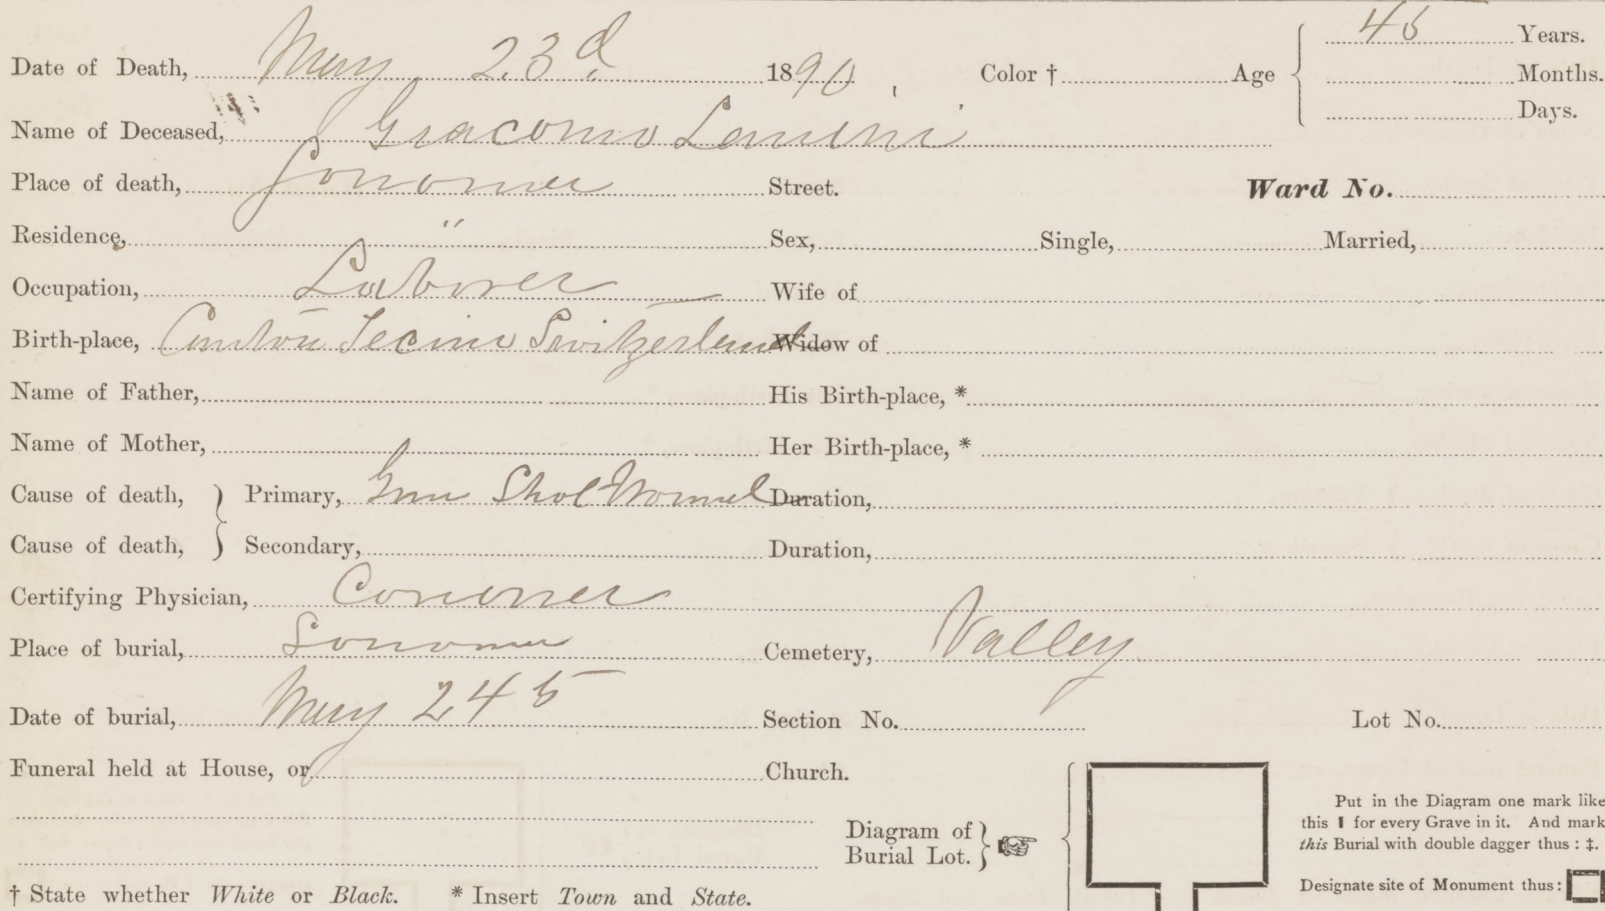 Date of Death, May 23d 1890 Color † Age 45 Years.
Months.
Name of Deceased, Giacomo Lanini Days.
Place of death, Sonoma Street. Ward No.
Residence, " Sex, Single, Married,
Occupation, Laborer Wife of
Birth-place, Canton Tecino Switzerland Widow of
Name of Father, His Birth-place, *
Name of Mother, Her Birth-place, *
Cause of death, } Primary, Gun Shot Wound Duration,
Cause of death, } Secondary, Duration,
Certifying Physician, Coroner
Place of burial, Sonoma Cemetery, Valley
Date of burial, May 24 Section No. Lot No.
Funeral held at House, or Church.
Diagram of
Burial Lot. }
Put in the Diagram one mark like
this ▮ for every Grave in it. And mark
this Burial with double dagger thus : ‡.
Designate site of Monument thus :
† State whether White or Black. * Insert Town and State.